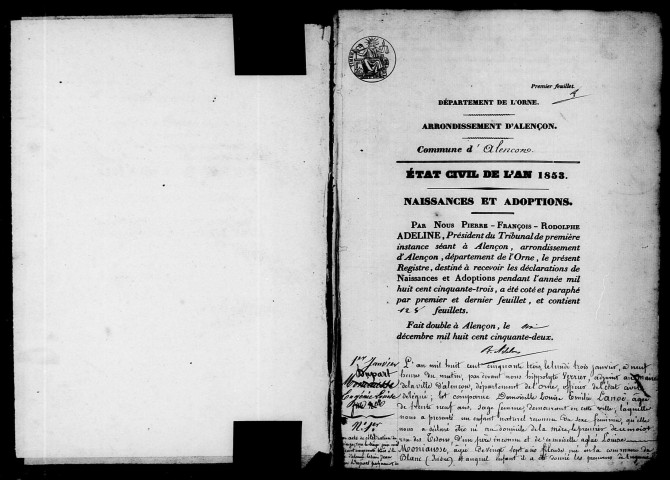 Premier feuillet.
DÉPARTEMENT DE L'ORNE.
ARRONDISSEMENT D'ALENÇON.
Commune d'Alençon.
ÉTAT CIVIL DE L'AN 1853.
NAISSANCES ET ADOPTIONS.
PAR NOUS PIERRE-FRANÇOIS-RODOLPHE
ADELINE, Président du Tribunal de première
instance séant à Alençon, arrondissement
d'Alençon, département de l'Orne, le présent
Registre, destiné à recevoir les déclarations de
Naissances et Adoptions pendant l'année mil
huit cent cinquante-trois, a été coté et paraphé
par premier et dernier feuillet, et contient
125 feuillets.
Fait double à Alençon, le
décembre mil huit cent cinquante-deux.
1er Janvier
Dupart
Momausse
Eugénie Louise
N.º 1er
L'an mil huit cent cinquante trois, le lundi trois janvier, à neuf
heures du matin, par devant nous hippolyte adjoint au maire
de la ville d'Alençon, département de l'orne, officier de l'état civil
délégué; est comparue Demoiselle Louise Emilie Lanoë, âgée
de trente neuf ans, sage femme, demeurant en cette ville; laquelle
nous a présenté un enfant naturel reconnu du sexe féminin, qu'elle
nous a déclaré être né au domicile de la mère, le premier de ce mois
rue des d'un père inconnu et de demoiselle aglaé Louise
Momausse, âgée de vingt sept ans, fileuse, née en la commune du
Blanc (Indre) & auquel enfant il a été donné les prénoms de Eugénie